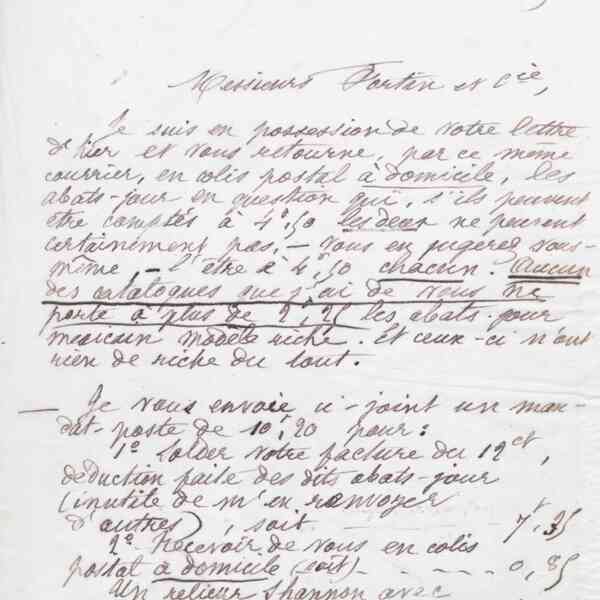 Messieurs Fortin et Cie,
Je suis en possession de votre lettre
d'hier et vous retourne, par ce même
courrier, en colis postal à domicile, les
abats-jour en question qui, s'ils peuvent
être comptés à 4f,50 les deux ne peuvent
certainement pas, — vous en jugerez vous-
même — l'être à 4f,50 chacun. Aucun
des catalogues que j'ai de vous ne
porte à plus de 2f,25 les abats-jour
mexicain modèle riche. Et ceux-ci n'ont
rien de riche du tout.
— Je vous envoie ci-joint un man-
dat-poste de 10f,20 pour:
1o Solder votre facture du 12 ct,
déduction faite des dits abats-jour
(inutile de m'en renvoyer
d'autres), soit 7f,35
2o Recevoir de vous en colis
postal à domicile (coût) - - - - 0,85
Un relieur Shannon avec